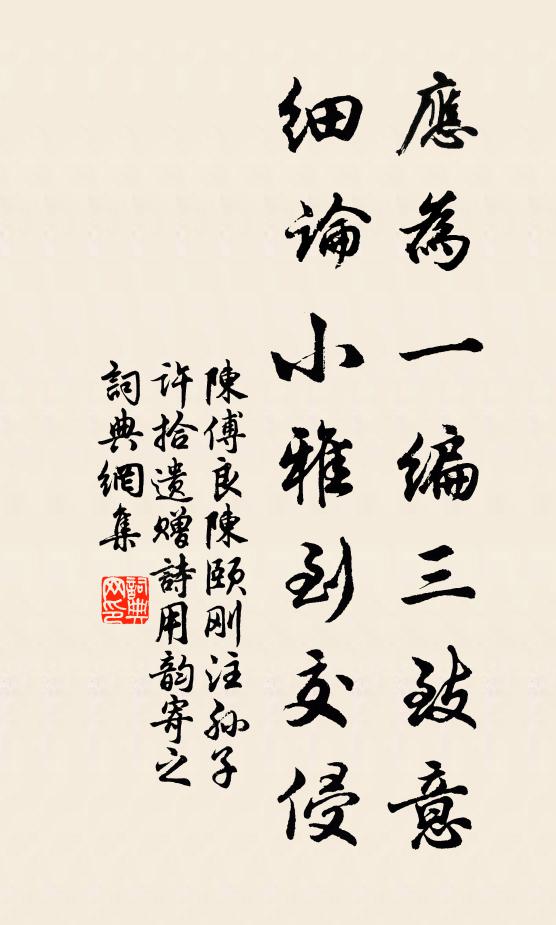 應為一編三致意
細論小雅到交侵
陳傅良陳頤剛注孙子
许拾遗赠詩用韵寄之
詞典網集
詞典
网印